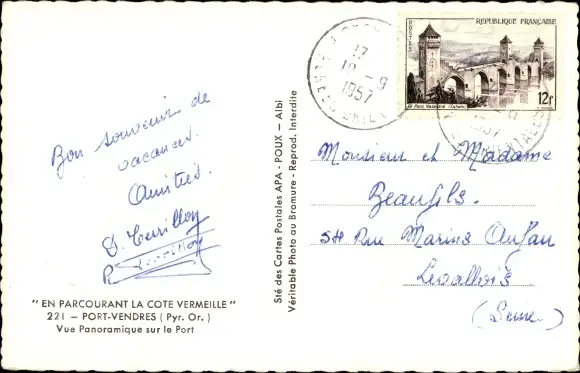 RÉPUBLIQUE FRANÇAISE
POSTES
Le Pont Valentré (Cahors)
12F
17
1957
Bon souvenir de
vacances.
Amitiés.
Monsieur et Madame
Beaufils.
Rue Marius Aufan
Levallois
(Seine)
Sté des Cartes Postales APA - POUX - Albi
Véritable Photo au Bromure - Reprod. Interdite
" EN PARCOURANT LA COTE VERMEILLE "
221 — PORT-VENDRES ( Pyr. Or. )
Vue Panoramique sur le Port